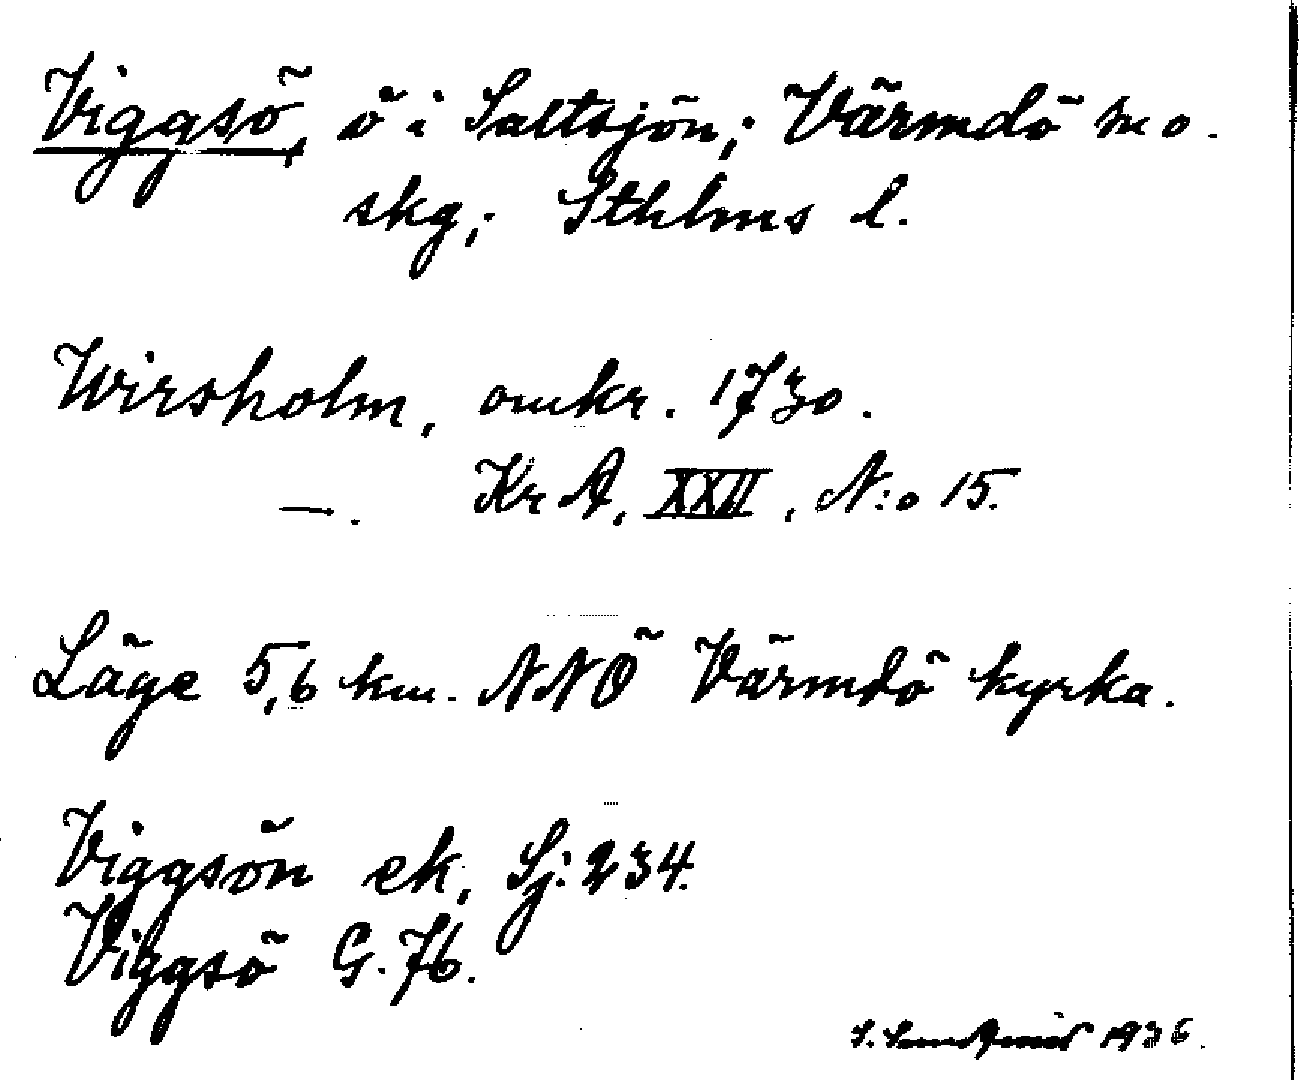 Viggsö, ö i Saltsjön; Värmdö s:o.
skg; Sthlms l.
Wirsholm, omkr. 1730.
—. KrA, XXII, N:o 15.
Läge 5,6 km. NNÖ Värmdö kyrka.
Viggsön ek, Sj: 234.
Viggsö G. 76.
S. 1936.